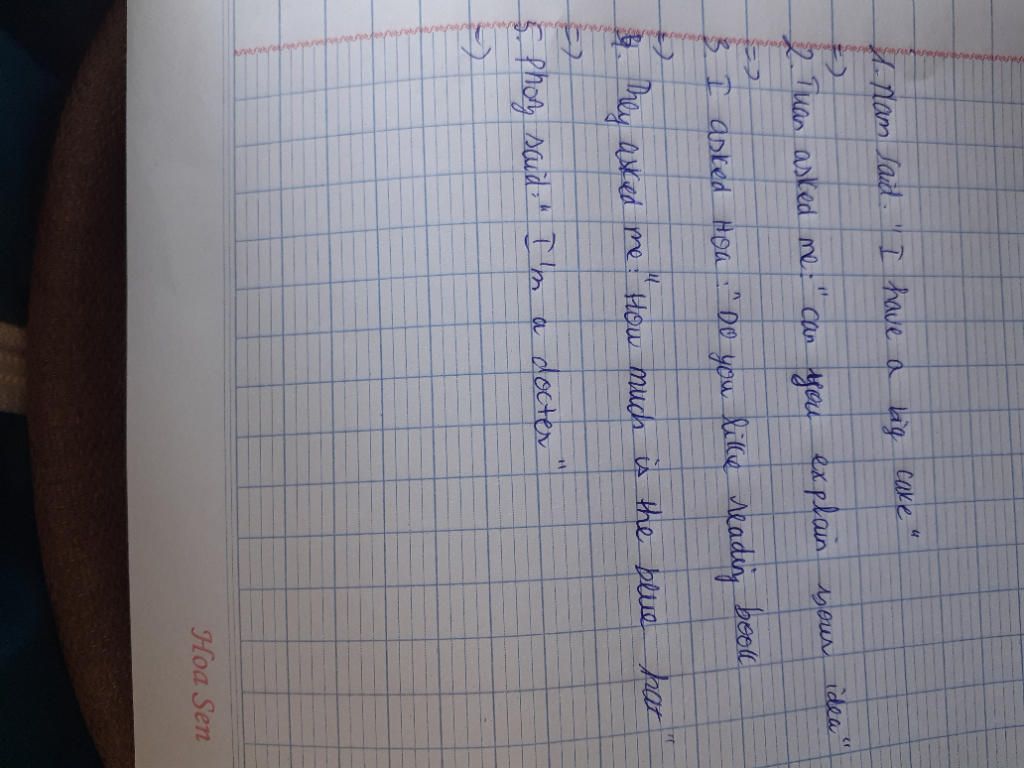 1. Nam said: "I have a big cake"
=>
2. Tuan asked me: "can you explain your idea"
=>
3. I asked Hoa: "Do you like reading book
=>
4. They asked me: "How much is the blue hat"
=>
5. Phong said: "I'm a docter"
=>
Hoa Sen